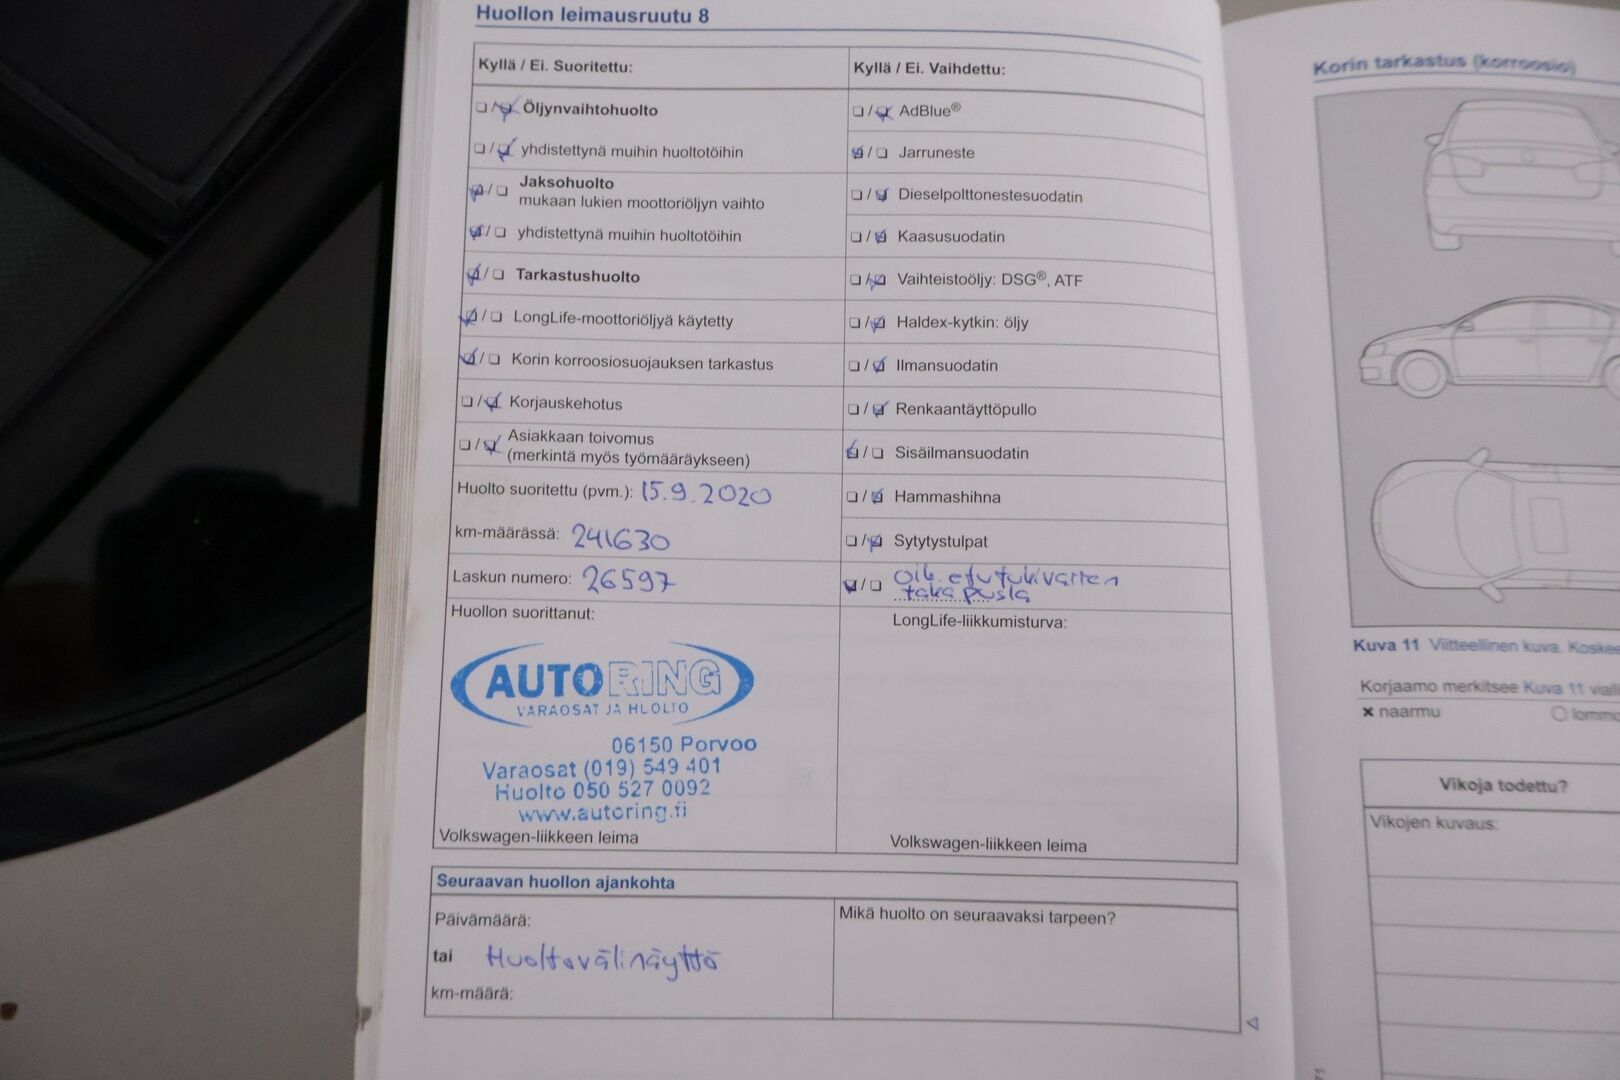 Huollon leimausruutu 8
Kyllä / Ei. Suoritettu:
☐/☑ Öljynvaihtohuolto
☐/☑ yhdistettynä muihin huoltotöihin
☑/☐ Jaksohuolto
mukaan lukien moottoriöljyn vaihto
☑/☐ yhdistettynä muihin huoltotöihin
☑/☐ Tarkastushuolto
☑/☐ LongLife-moottoriöljyä käytetty
☑/☐ Korin korroosiosuojauksen tarkastus
☐/☑ Korjauskehotus
☐/☑ Asiakkaan toivomus
(merkintä myös työmääräykseen)
Huolto suoritettu (pvm.): 15.9.2020
km-määrässä: 241630
Laskun numero: 26597
Huollon suorittanut:
AUTORING
VARAOSAT JA HUOLTO
06150 Porvoo
Varaosat (019) 549 401
Huolto 050 527 0092
www.autoring.fi
Volkswagen-liikkeen leima
Kyllä / Ei. Vaihdettu:
☐/☑ AdBlue®
☑/☐ Jarruneste
☐/☑ Dieselpolttonestesuodatin
☐/☑ Kaasusuodatin
☐/☑ Vaihteistoöljy: DSG®, ATF
☐/☑ Haldex-kytkin: öljy
☐/☑ Ilmansuodatin
☐/☑ Renkaantäyttöpullo
☑/☐ Sisäilmansuodatin
☐/☑ Hammashihna
☐/☑ Sytytystulpat
☑/☐ Oik. etutukivarren
taka pusla
LongLife-liikkumisturva:
Volkswagen-liikkeen leima
Seuraavan huollon ajankohta
Päivämäärä:
tai Huoltovälinäyttö
km-määrä:
Mikä huolto on seuraavaksi tarpeen?
Korin tarkastus (korroosio)
Kuva 11 Viitteellinen kuva. Koskee
Korjaamo merkitsee Kuva 11 vialli
✖ naarmu
○ lommo
Vikoja todettu?
Vikojen kuvaus: